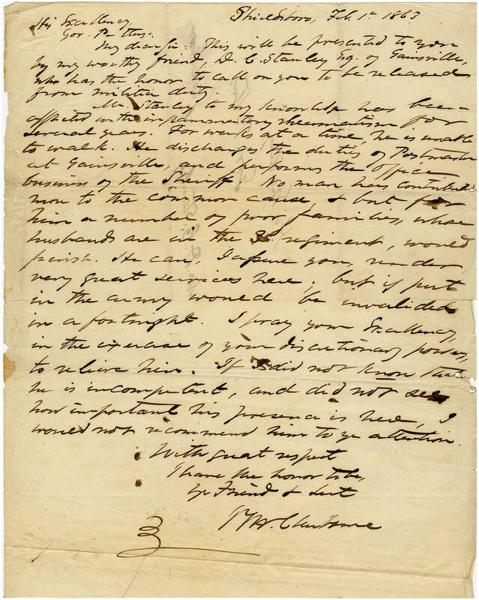 Shieldsboro, Feb. 1st 1863
His Excellency
Gov. Pettus.
My dear Sir. This will be presented to you
by my worthy friend, D. C. Stanley Esq. of Gainsville,
who has the honor to call on you to be released
from militia duty.
Mr. Stanley to my knowledge has been
afflicted with inflammatory rheumatism for
several years. For weeks at a time, he is unable
to walk. He discharges the duties of Postmaster
at Gainsville, and performs the office
business of the Sheriff. No man has contributed
more to the common cause, & but for
him a number of poor families, whose
husbands are in the 3d regiment, would
perish. He can, I assure you, render
very great services here, but if put
in the army would be invalided
in a fortnight. I pray your Excellency,
in the exercise of your discretionary powers,
to relieve him. If I did not know that
he is incompetent, and did not see
how important his presence is here, I
would not recommend him to yr attention.
With great respect
I have the honor to be,
yr Friend & Servt
J. F. H. Claiborne